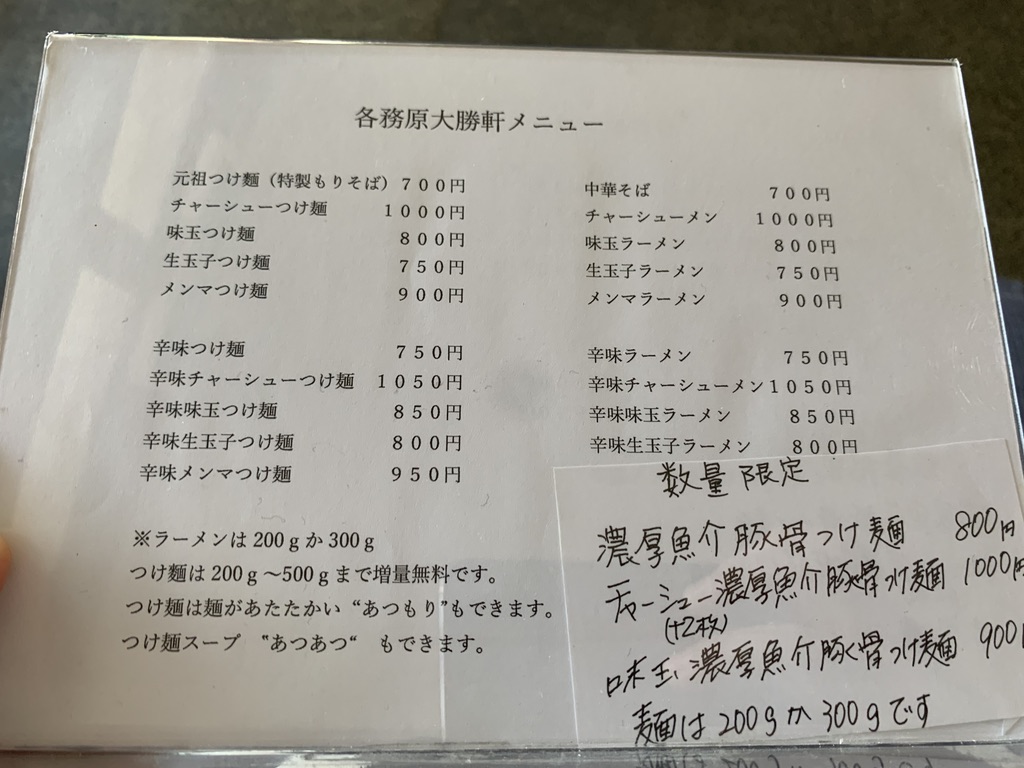 各務原大勝軒メニュー
元祖つけ麺（特製もりそば）７００円
チャーシューつけ麺　１０００円
味玉つけ麺　８００円
生玉子つけ麺　７５０円
メンマつけ麺　９００円
辛味つけ麺　７５０円
辛味チャーシューつけ麺　１０５０円
辛味味玉つけ麺　８５０円
辛味生玉子つけ麺　８００円
辛味メンマつけ麺　９５０円
※ラーメンは200ｇか300ｇ
つけ麺は200ｇ～500ｇまで増量無料です。
つけ麺は麺があたたかい “あつもり”もできます。
つけ麺スープ　‟あつあつ“　もできます。
中華そば　７００円
チャーシューメン　１０００円
味玉ラーメン　８００円
生玉子ラーメン　７５０円
メンマラーメン　９００円
辛味ラーメン　７５０円
辛味チャーシューメン１０５０円
辛味味玉ラーメン　８５０円
辛味生玉子ラーメン　８００円
数量限定
濃厚魚介豚骨つけ麺　800円
チャーシュー濃厚魚介豚骨つけ麺　1000円
(+2枚)
味玉濃厚魚介豚骨つけ麺　900
麺は200gか300gです